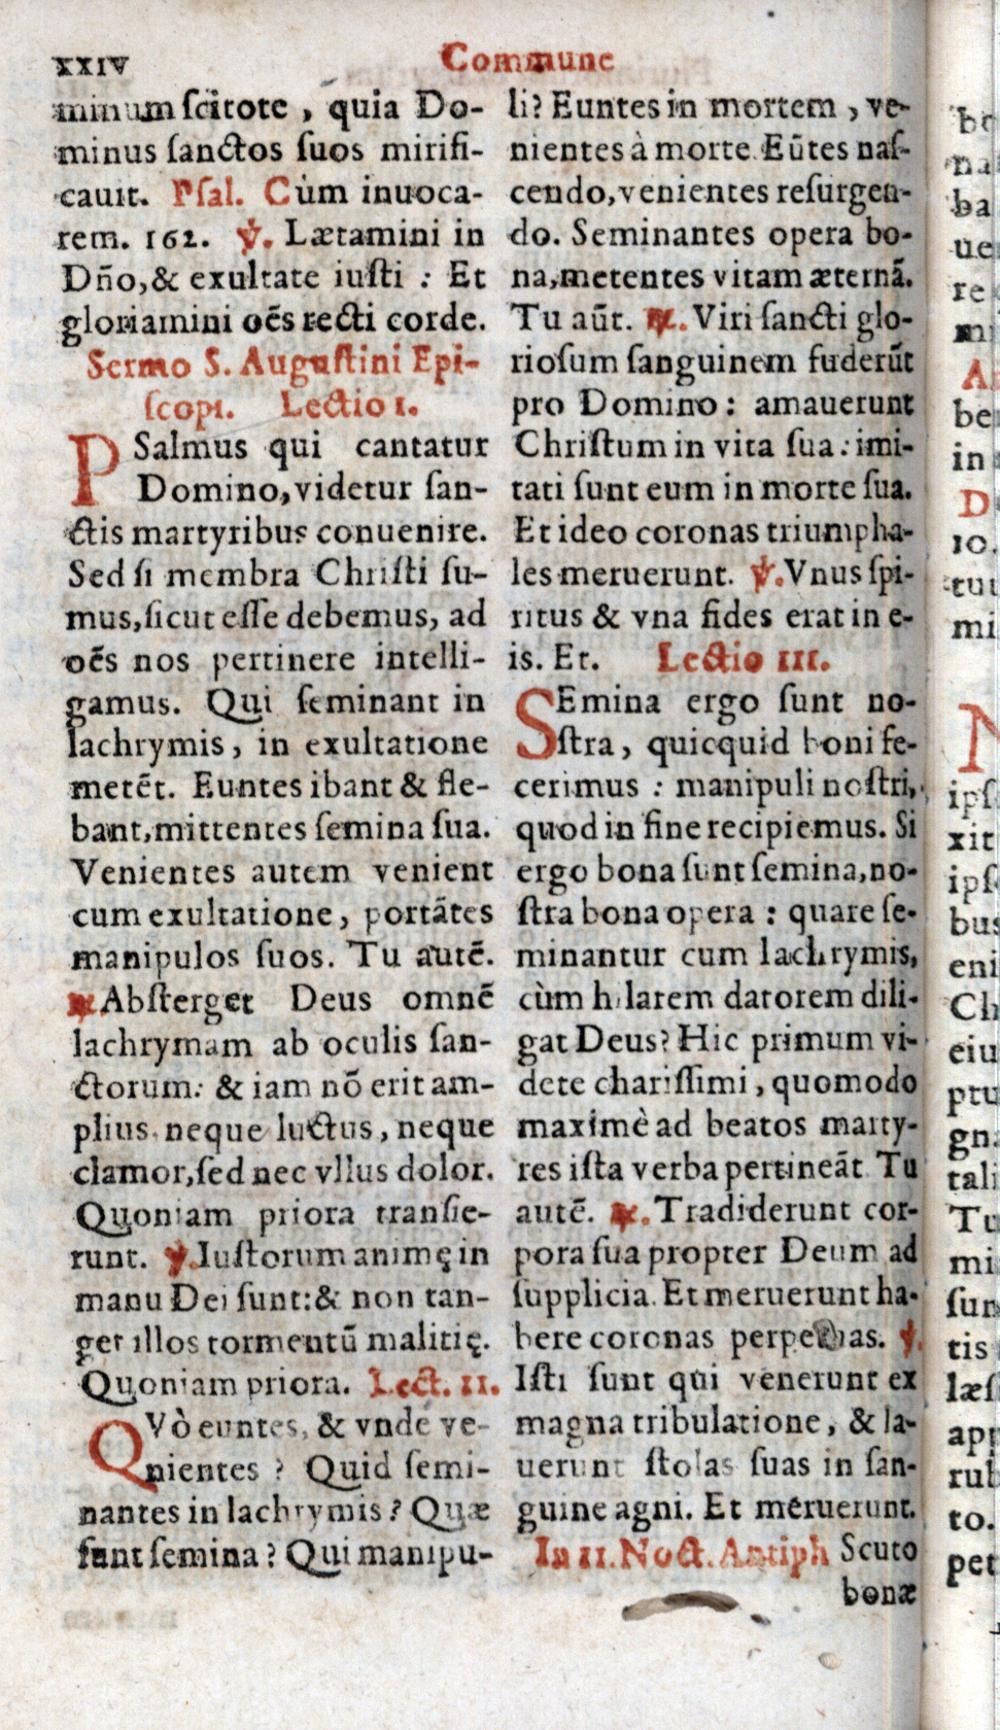 xxiv Commune
minum ſcitote, quia Do-
minus ſanctos ſuos mirifi-
cauit. Pſal. Cùm inuoca-
rem. 162. ℣. Lætamini in
Dño,& exultate iuſti : Et
gloriamini oẽs recti corde.
Sermo S. Auguſtini Epi-
ſcopi. Lectio 1.
PSalmus qui cantatur
Domino,videtur ſan-
ctis martyribus conuenire.
Sed ſi membra Chriſti ſu-
mus,ſicut eſſe debemus, ad
oẽs nos pertinere intelli-
gamus. Qui ſeminant in
lachrymis, in exultatione
metẽt. Euntes ibant & fle-
bant,mittentes ſemina ſua.
Venientes autem venient
cum exultatione, portãtes
manipulos ſuos. Tu autẽ.
℟.Abſterget Deus omnẽ
lachrymam ab oculis ſan-
ctorum: & iam nõ erit am-
plius neque luctus, neque
clamor,ſed nec vllus dolor.
Quoniam priora tranſie-
runt. ℣.Iuſtorum animę in
manu Dei ſunt:& non tan-
get illos tormentũ malitię.
Quoniam priora. Lect. 11.
QVò euntes, & vnde ve-
nientes ? Quid ſemi-
nantes in lachrymis? Quæ
ſunt ſemina? Qui manipu-
li? Euntes in mortem, ve-
nientes à morte. Eũtes naſ-
cendo,venientes reſurgen-
do. Seminantes opera bo-
na,metentes vitam æternã.
Tu aũt. ℟. Viri ſancti glo-
rioſum ſanguinem fuderũt
pro Domino: amauerunt
Chriſtum in vita ſua: imi-
tati ſunt eum in morte ſua.
Et ideo coronas triumpha-
les meruerunt. ℣.Vnus ſpi-
ritus & vna fides erat in e-
is. Et. Lectio 111.
SEmina ergo ſunt no-
ſtra, quicquid boni fe-
cerimus : manipuli noſtri,
quod in fine recipiemus. Si
ergo bona ſunt ſemina,no-
ſtra bona opera : quare ſe-
minantur cum lachrymis,
cùm hilarem datorem dili-
gat Deus? Hic primum vi-
dete chariſſimi, quomodo
maximè ad beatos marty-
res iſta verba pertineãt Tu
autẽ. ℟.Tradiderunt cor-
pora ſua propter Deum ad
ſupplicia. Et meruerunt ha-
bere coronas perpetuas. ℣.
Iſti ſunt qui venerunt ex
magna tribulatione, & la-
uerunt ſtolas ſuas in ſan-
guine agni. Et meruerunt.
In 11.Noct.Antiph Scuto
bonæ